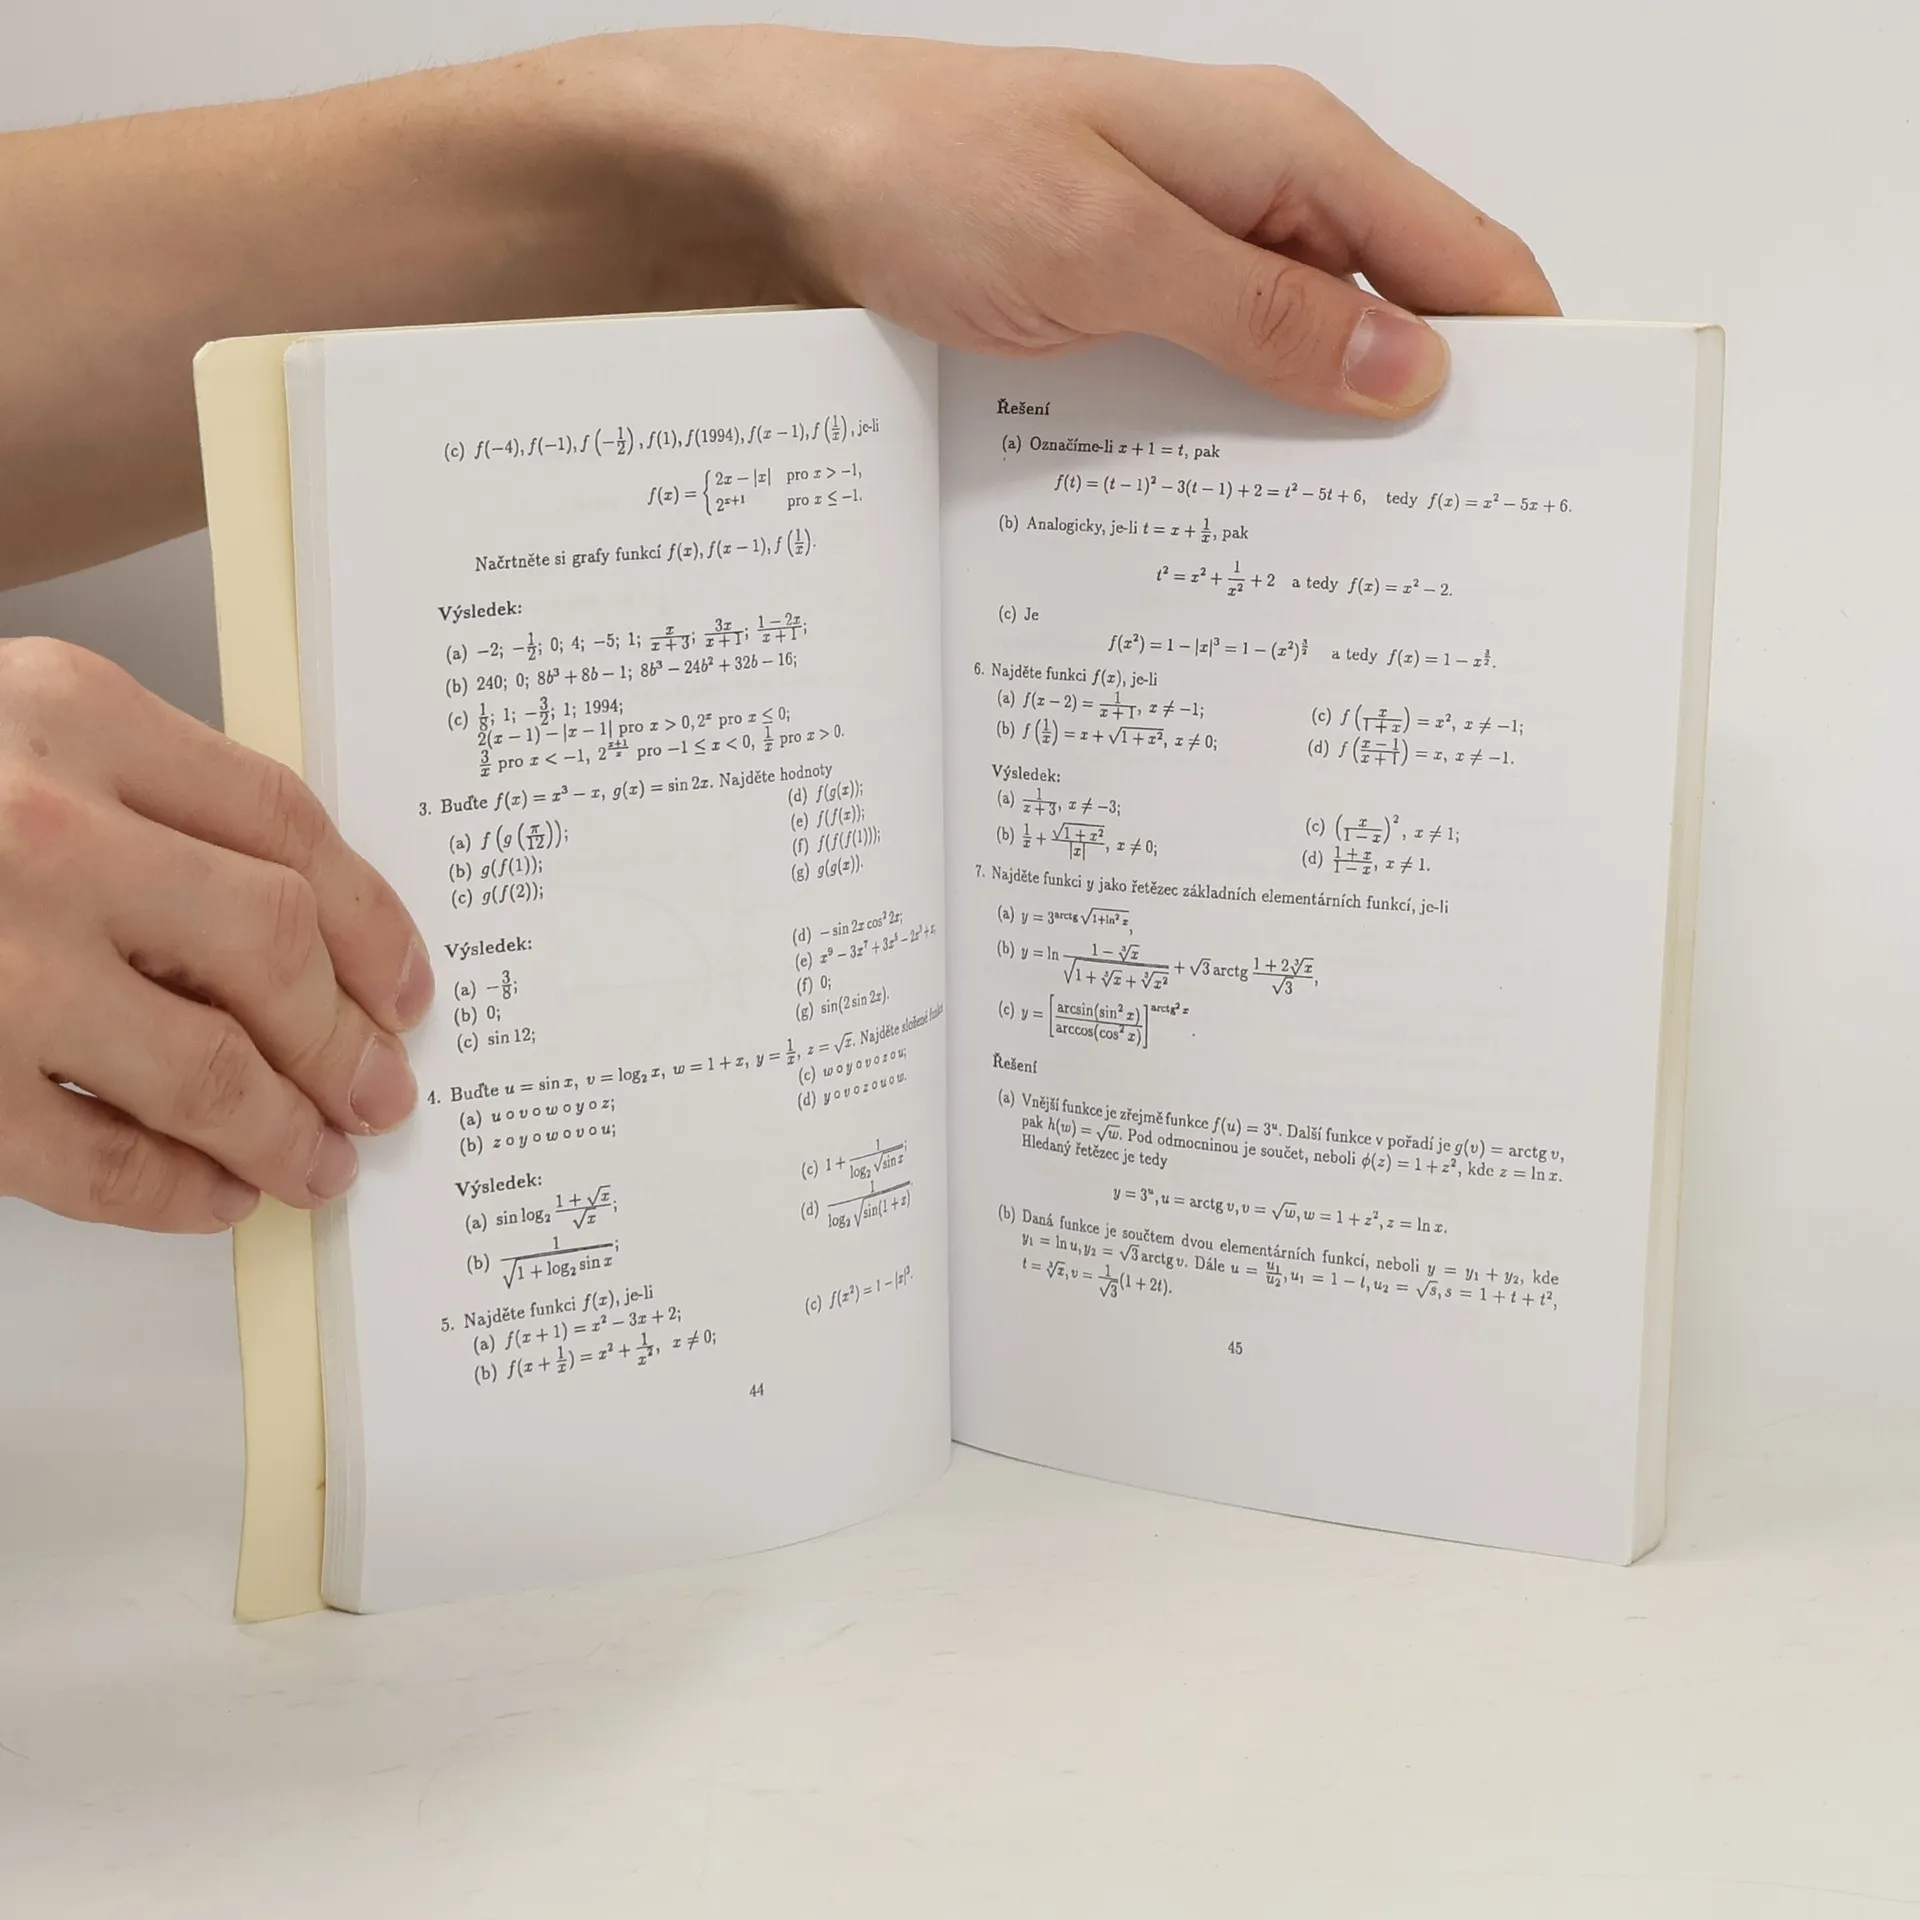 (c) f(−4), f(−1), f(−1/2), f(1), f(1994), f(x − 1), f(1/x), je-li
f(x) = { 2x − |x| pro x > −1,
2^{x+1} pro x ≤ −1.
Načrtněte si grafy funkcí f(x), f(x − 1), f(1/x).
Výsledek:
(a) −2; −1/2; 0; 4; −5; 1; x/(x+3); 3x/(x+1); (1−2x)/(x+1);
(b) 240; 0; 8b³ + 8b − 1; 8b³ − 24b² + 32b − 16;
(c) 1/8; 1; −3/2; 1; 1994;
2(x − 1) − |x − 1| pro x > 0, 2^x pro x ≤ 0;
3/x pro x < −1, 2^{(x+1)/x} pro −1 ≤ x < 0, 1/x pro x > 0.
3. Buďte f(x) = x³ − x, g(x) = sin 2x. Najděte hodnoty
(a) f(g(π/12));
(b) g(f(1));
(c) g(f(2));
(d) f(g(x));
(e) f(f(x));
(f) f(f(f(1)));
(g) g(g(x)).
Výsledek:
(a) −3/8;
(b) 0;
(c) sin 12;
(d) − sin 2x cos² 2x;
(e) x⁹ − 3x⁷ + 3x⁵ − 2x³ + x,
(f) 0;
(g) sin(2 sin 2x).
4. Buďte u = sin x, v = log₂ x, w = 1 + x, y = 1/x, z = √x. Najděte složené
(a) u ∘ v ∘ w ∘ y ∘ z;
(b) z ∘ y ∘ w ∘ v ∘ u;
(c) w ∘ y ∘ v ∘ z ∘ u;
(d) y ∘ v ∘ z ∘ u ∘ w.
Výsledek:
(a) sin log₂ (1 + √x)/√x;
(b) 1/√(1 + log₂ sin x);
(c) 1 + 1/(log₂ √(sin x));
(d) 1/(log₂ √(sin(1 + x))
5. Najděte funkci f(x), je-li
(a) f(x + 1) = x² − 3x + 2;
(b) f(x + 1/x) = x² + 1/x², x ≠ 0;
(c) f(x²) = 1 − |x|³.
44
Řešení
(a) Označíme-li x + 1 = t, pak
f(t) = (t − 1)² − 3(t − 1) + 2 = t² − 5t + 6, tedy f(x) = x² − 5x + 6.
(b) Analogicky, je-li t = x + 1/x, pak
t² = x² + 1/x² + 2 a tedy f(x) = x² − 2.
(c) Je
f(x²) = 1 − |x|³ = 1 − (x²)^{3/2} a tedy f(x) = 1 − x^{3/2}.
6. Najděte funkci f(x), je-li
(a) f(x − 2) = 1/(x+1), x ≠ −1;
(b) f(1/x) = x + √(1 + x²), x ≠ 0;
(c) f(x/(1+x)) = x², x ≠ −1;
(d) f((x−1)/(x+1)) = x, x ≠ −1.
Výsledek:
(a) 1/(x+3), x ≠ −3;
(b) 1/x + √(1+x²)/|x|, x ≠ 0;
(c) (x/(1−x))², x ≠ 1;
(d) (1+x)/(1−x), x ≠ 1.
7. Najděte funkci y jako řetězec základních elementárních funkcí, je-li
(a) y = 3^{arctg √(1+ln² x)},
(b) y = ln (1 − ∛x)/√(1 + ∛x + ∛x²) + √3 arctg (1 + 2∛x)/√3,
(c) y = [arcsin(sin² x)/arccos(cos² x)]^{arctg² x}.
Řešení
(a) Vnější funkce je zřejmě funkce f(u) = 3^u. Další funkce v pořadí je g(v) = arctg v,
pak h(w) = √w. Pod odmocninou je součet, neboli ϕ(z) = 1 + z², kde z = ln x.
Hledaný řetězec je tedy
y = 3^u, u = arctg v, v = √w, w = 1 + z², z = ln x.
(b) Daná funkce je součtem dvou elementárních funkcí, neboli y = y₁ + y₂, kde
y₁ = ln u, y₂ = √3 arctg v. Dále u = u₁/u₂, u₁ = 1 − t, u₂ = √s, s = 1 + t + t²,
t = ∛x, v = 1/√3 (1 + 2t).
45